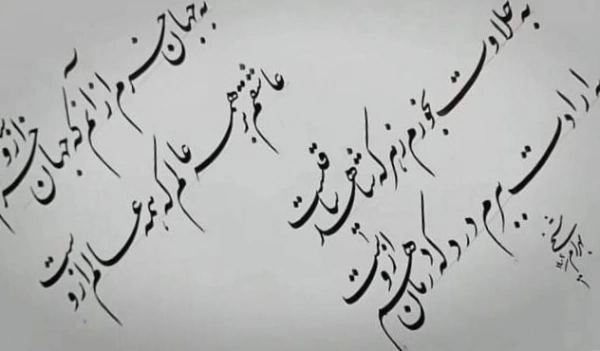 به جهان خرم از آنم که جهان خرم ازو
عاشقم بر همه عالم که همه عالم ازوست
به حلاوت بخورم زهر که شاهد ساقیست
به ارادت ببرم درد که درمان هم ازوست